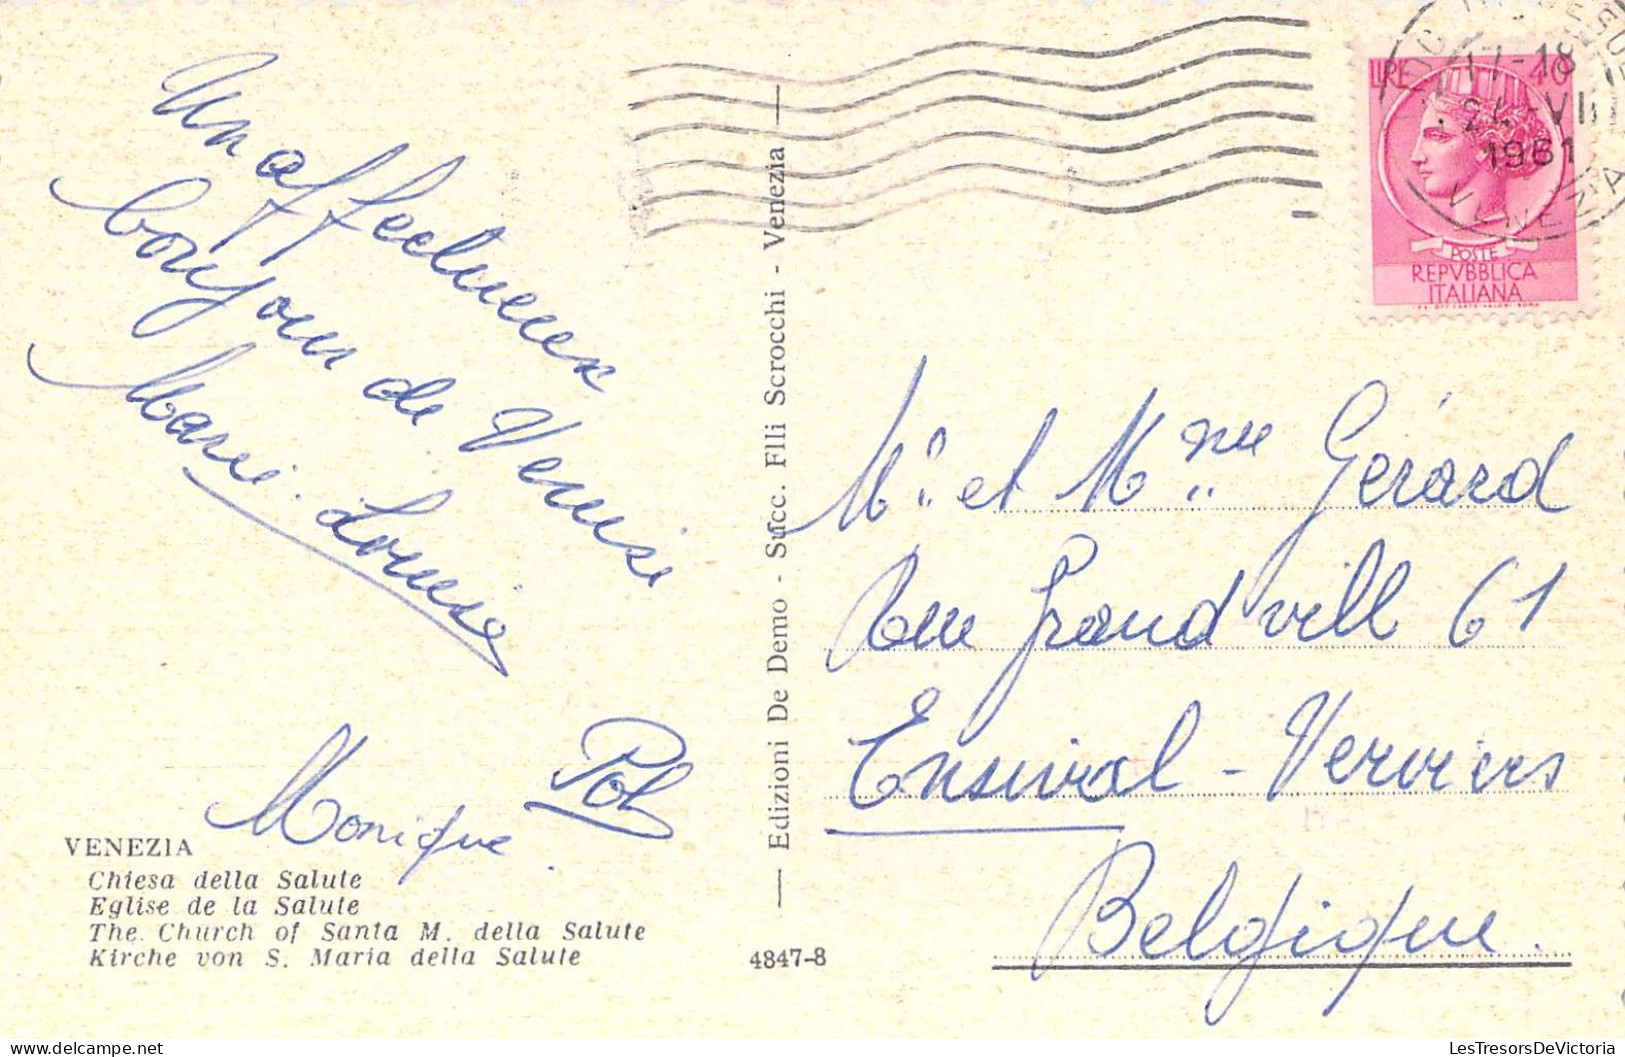 Un affectueux
bonjour de Venise
Marie-Louise
Monique.
Pol
VENEZIA
Chiesa della Salute
Eglise de la Salute
The Church of Santa M. della Salute
Kirche von S. Maria della Salute
4847-8
Edizioni De Demo - Succ. Flli Scrocchi - Venezia
LIRE 40
POSTE
REPVBBLICA
ITALIANA
17-18
1961
VENEZIA
Mr. et Mme Gérard
Rue Grandvill 61
Ensival - Verviers
Belgique.
LesTresorsDeVictoria